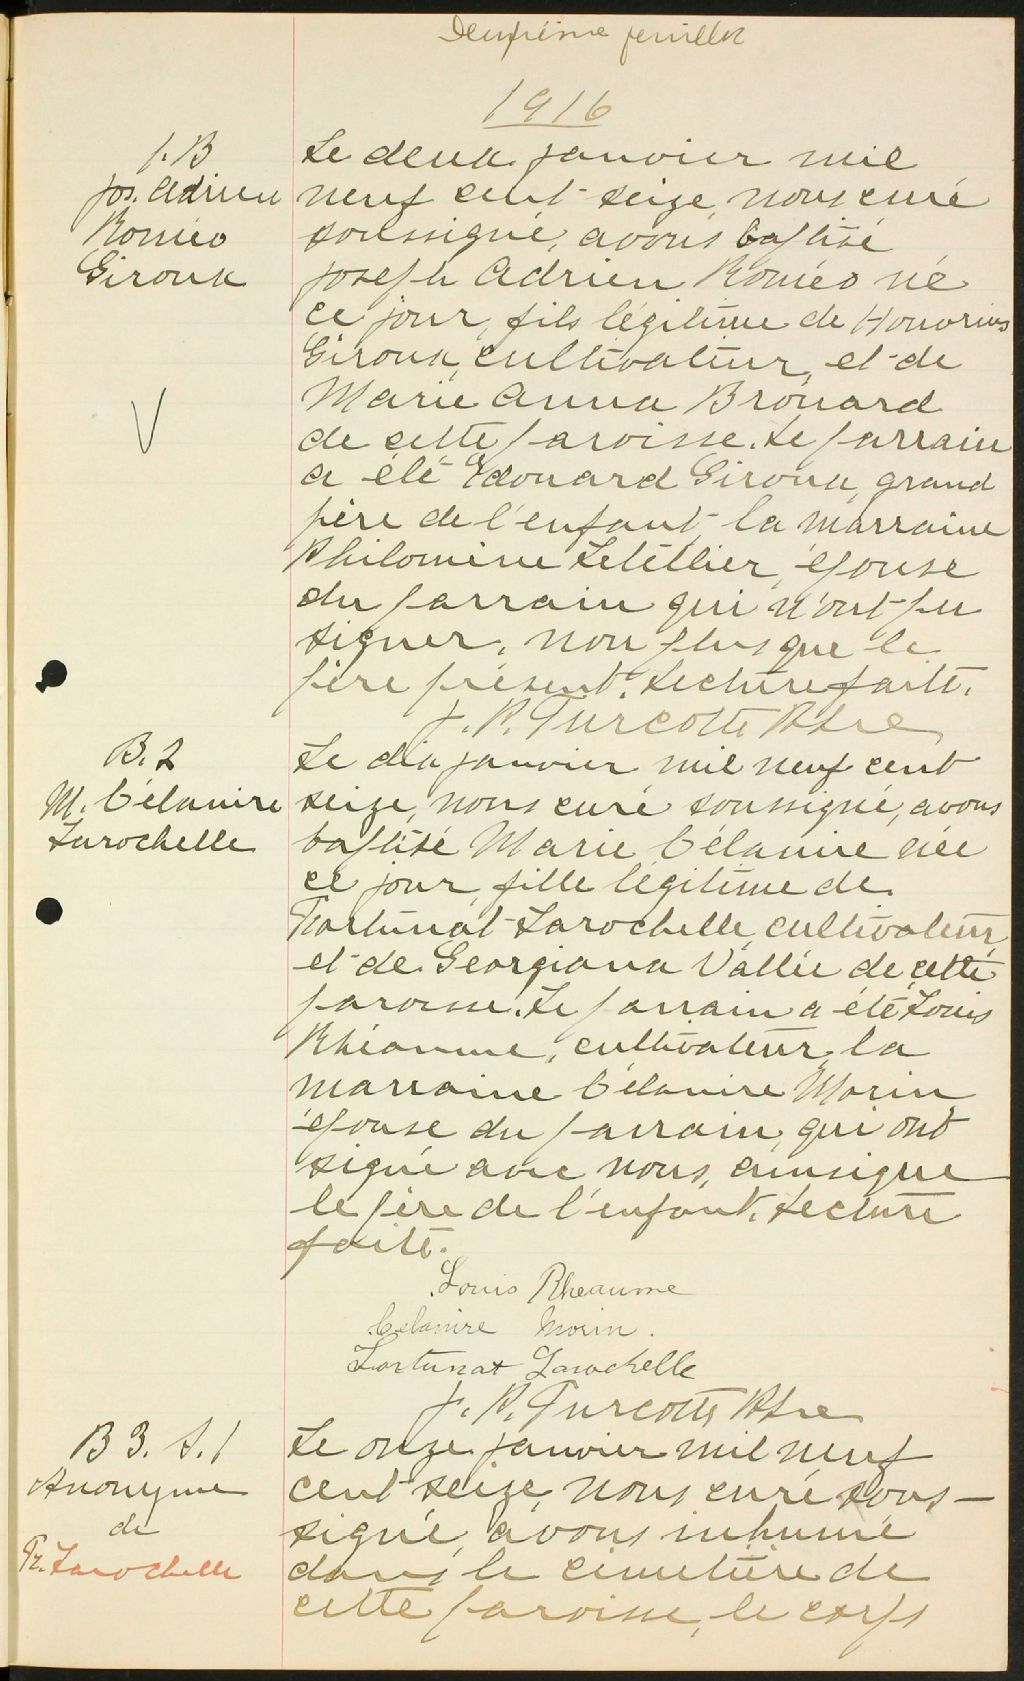 Deuxième feuillet
1916
1. B
Jos. Adrien
Roméo
Giroux
Le deux janvier mil
neuf cent seize, nous curé
soussigné, avons baptisé
Joseph Adrien Roméo né
ce jour, fils légitime de Honorius
Giroux, cultivateur, et de
Marie Anna Brouard
de cette paroisse. Le parrain
a été Edouard Giroux, grand
père de l'enfant, la marraine
Philomène Letellier, épouse
du parrain qui n'ont pu
signer, non plus que le
père présent. Lecture faite.
J. P. Turcotte Ptre
B. 2
M. Célanire
Larochelle
Le dix janvier mil neuf cent
seize, nous curé soussigné, avons
baptisé Marie Célanire née
ce jour, fille légitime de
Fortunat Larochelle, cultivateur,
et de Georgiana Vallée de cette
paroisse. Le parrain a été Louis
Rhéaume, cultivateur, la
marraine Célanire Morin
épouse du parrain, qui ont
signé avec nous, ainsi que
le père de l'enfant. Lecture
faite.
Louis Rheaume
Celanire Morin.
Fortunat Larochelle
J. P. Turcotte Ptre
B 3. S. 1
Anonyme
de
Ft. Larochelle
Le onze janvier mil neuf
cent seize, nous curé sous-
signé, avons inhumé
dans le cimetière de
cette paroisse, le corps